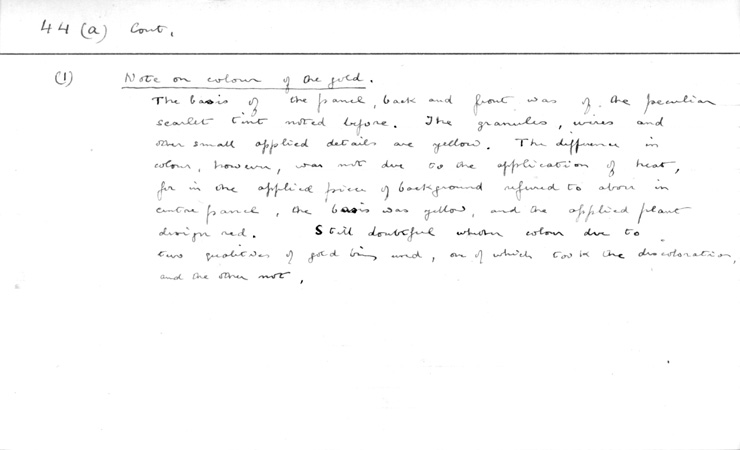 44 (a) Cont.
(1) Note on colour of the gold.
The basis of the panel, back and front was of the peculiar
scarlet tint noted before. The granules, wires and
other small applied details are yellow. The difference in
colour, however, was not due to the application of heat,
for in the applied piece of background referred to above in
centre panel, the basis was yellow, and the applied plant
design red. Still doubtful whether colour due to
two qualities of gold being used, one of which took the discoloration,
and the other not.